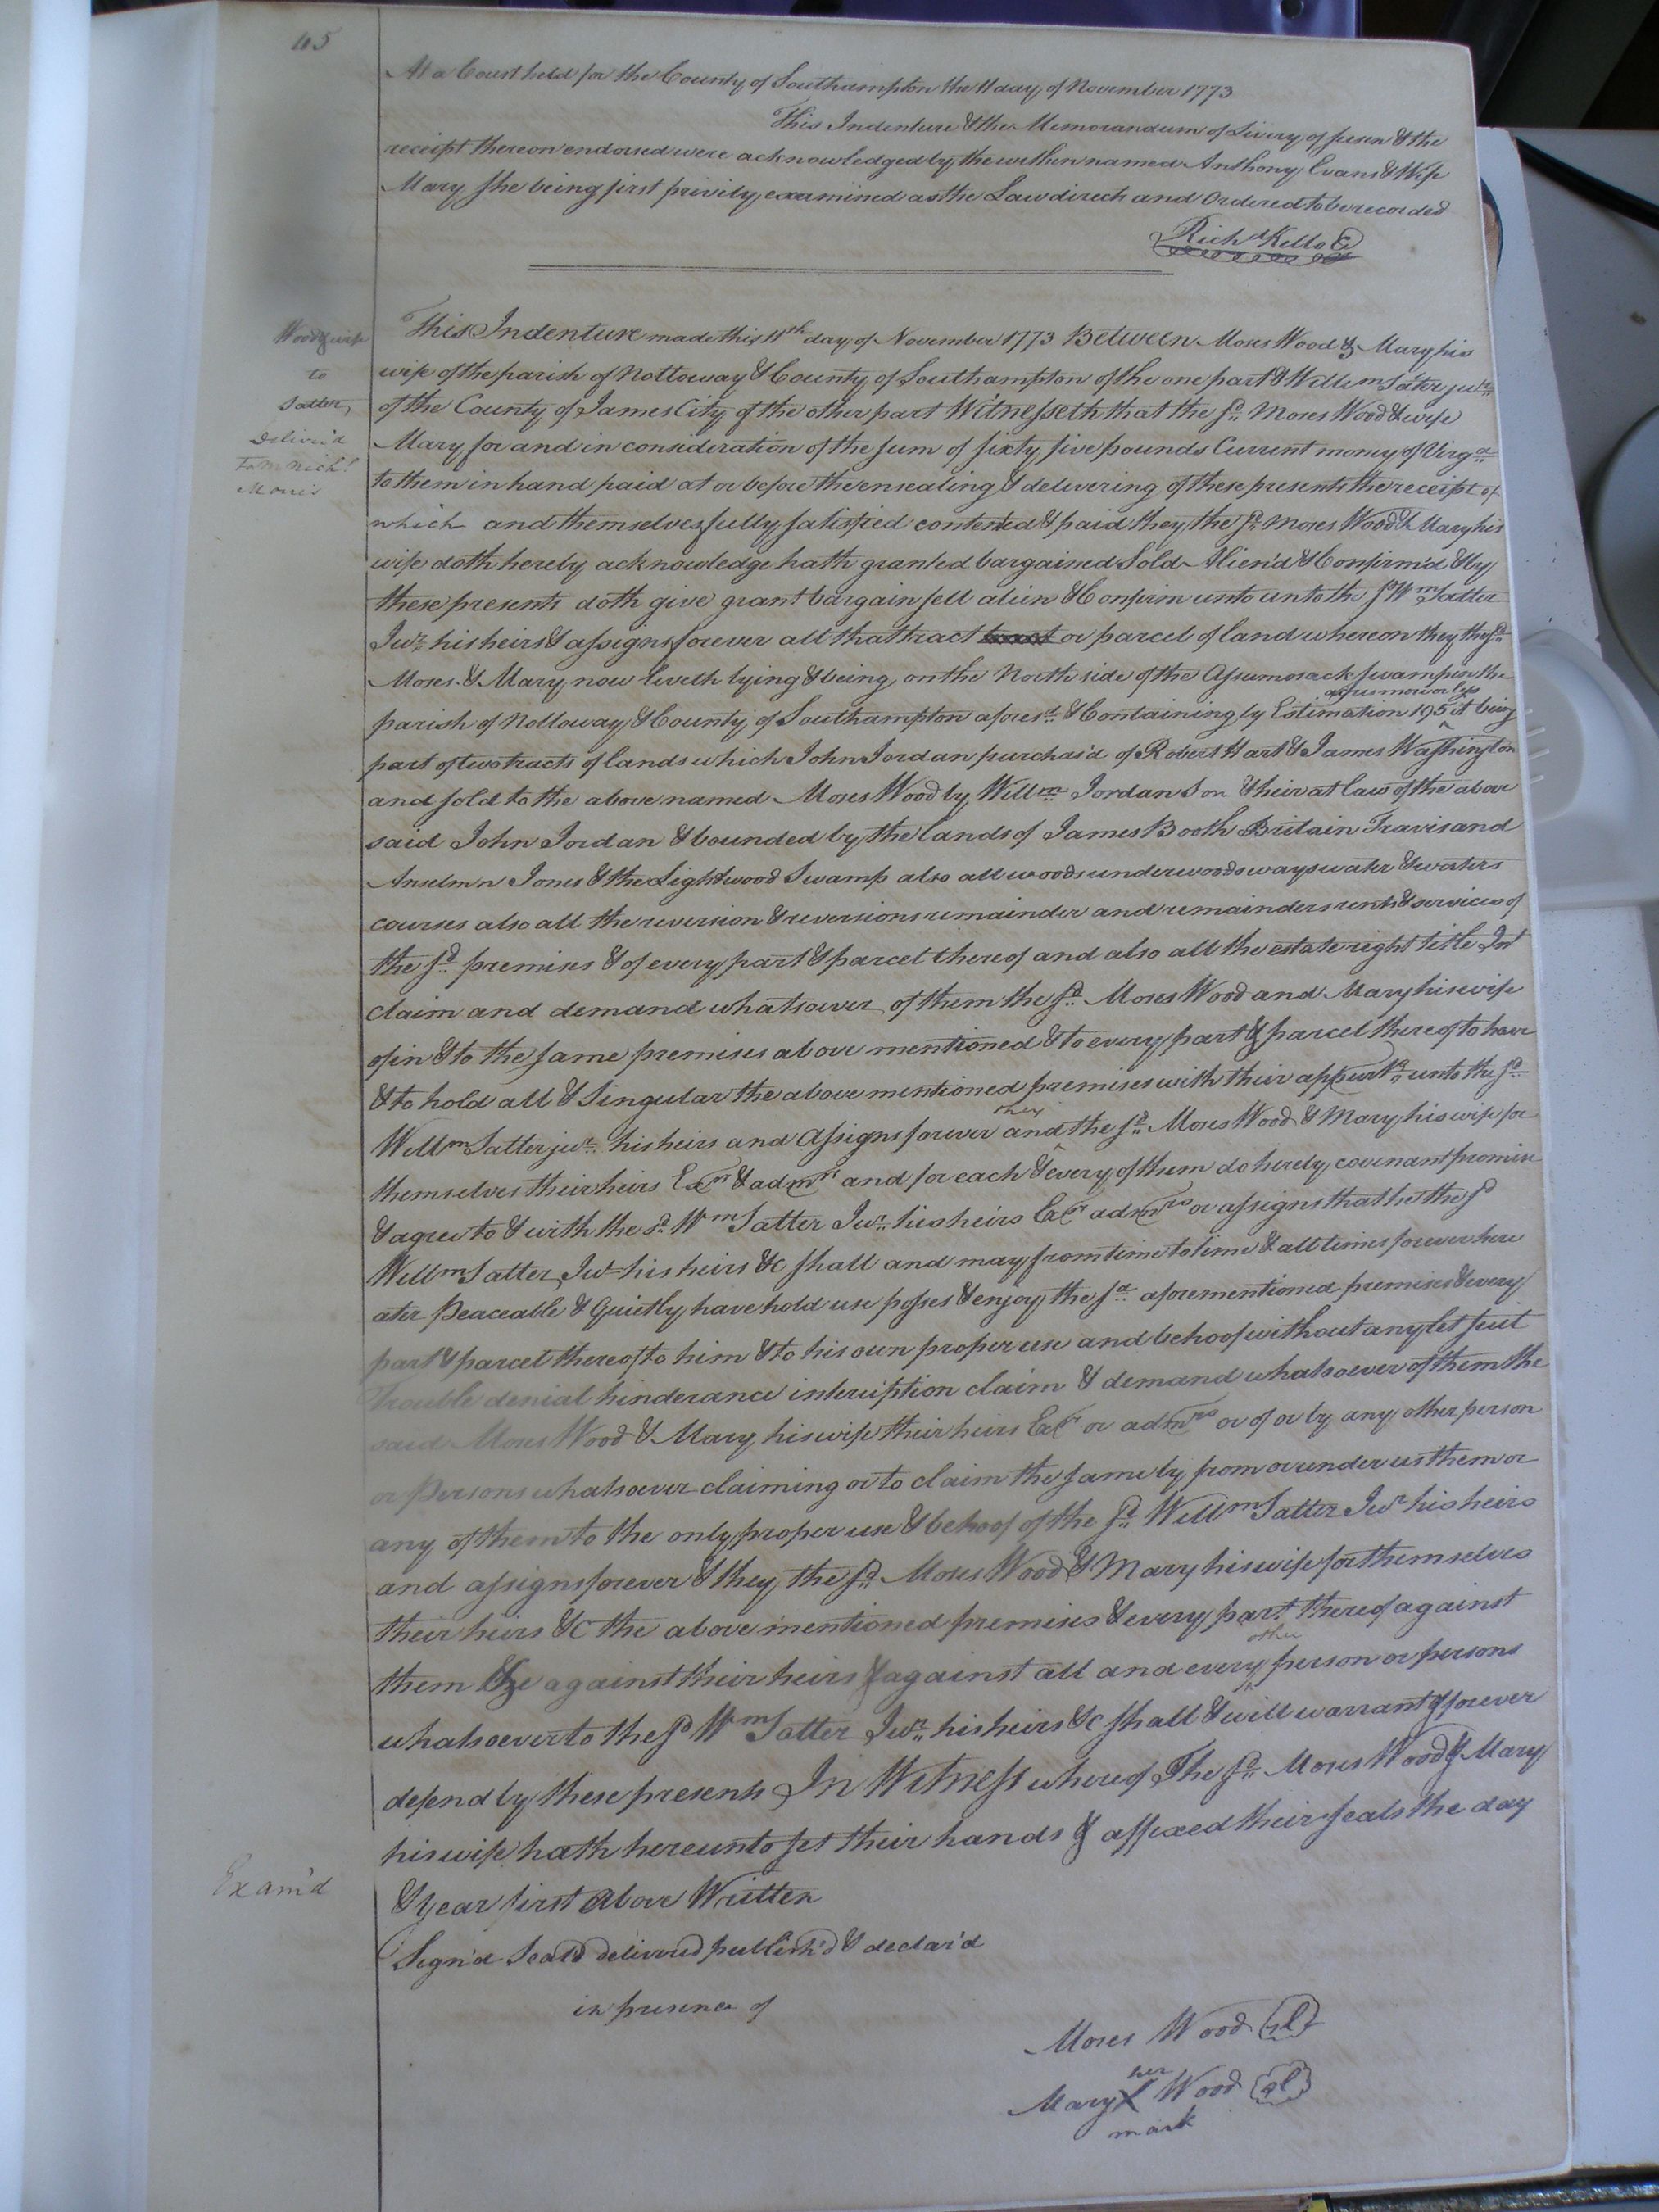 45
At a Court held for the County of Southampton the 11 day of November 1773
This Indenture & the Memorandum of Livery of seisen & the
receipt thereon endorsed were acknowledged by the within named Anthony Evans & Wife
Mary she being first privily examined as the Law directs and Ordered to be recorded
Richd Kello
Wood & wife
to
Satter
Deliver'd
To Mr Nich!
Morris
This Indenture made this 11th day of November 1773 Between Moses Wood & Mary his
wife of the parish of Nottoway & County of Southampton of the one part & Willm Sater junr
of the County of James City of the other part Witnesseth that the sd Moses Wood & wife
Mary for and in consideration of the sum of sixty five pounds Current money of Virga
to them in hand paid at or before the ensealing & delivering of these presents the receipt of
which and themselves fully satisfied contented & paid they the sd Moses Wood & Mary his
wife doth hereby acknowledge hath granted bargained Sold Alien'd & Confirm'd & by
these presents doth give grant bargain sell alien & Confirm unto unto the sd Wm Satter
Junr his heirs & assigns forever all that tract or parcel of land whereon they the sd
Moses & Mary now liveth lying & being on the North side of the Assumosack swamp in the
parish of Nottoway & County of Southampton aforesd & Containing by Estimation 195 acres more or less it being
part of two tracts of lands which John Jordan purchas'd of Robert Hart & James Washington
and sold to the above named Moses Wood by Willm Jordan Son & heir at law of the above
said John Jordan & bounded by the lands of James Booth Britain Travis and
Anselmn Jones & the Lightwood Swamp also all woods underwoods ways water & waters
courses also all the reversion & reversions remainder and remainders rents & services of
the sd premises & of every part & parcel thereof and also all the estate right title Int
claim and demand whatsoever of them the sd Moses Wood and Mary his wife
of in & to the same premises above mentioned & to every part & parcel thereof to have
& to hold all & Singular the above mentioned premises with their appurts unto the sd
Willm Satter junr his heirs and Assigns forever and they the sd Moses Wood & Mary his wife for
themselves their heirs Exrs & admrs and for each & every of them do hereby covenant promise
& agree to & with the sd Wm Satter Junr his heirs Exr admrs or assigns that he the sd
Willm Satter Junr his heirs &c shall and may from time to time & all times forever here
ater Peaceable & Quietly have hold use posses & enjoy the sd aforementioned premises & every
part & parcel thereof to him & to his own proper use and behoof without any let suit
trouble denial hinderance interuption claim & demand whatsoever of them the
said Moses Wood & Mary his wife their heirs Exr or admrs or of or by any other person
or Persons whatsoever claiming or to claim the same by from or under us them or
any of them to the only proper use & behoof of the sd Willm Satter Junr his heirs
and assigns forever & they the sd Moses Wood & Mary his wife for themselves
their heirs &c the above mentioned premises & every part thereof against
them & against their heirs & against all and every other person or persons
whatsoever to the sd Wm Satter Junr his heirs &c shall & will warrant & forever
defend by these presents In Witness whereof The sd Moses Wood & Mary
his wife hath hereunto set their hands & affixed their seals the day
Exam'd
& year first above Written
Sign'd Seal'd delivered publish'd & declar'd
in presence of
Moses Wood sl
her
Mary X Wood sl
mark